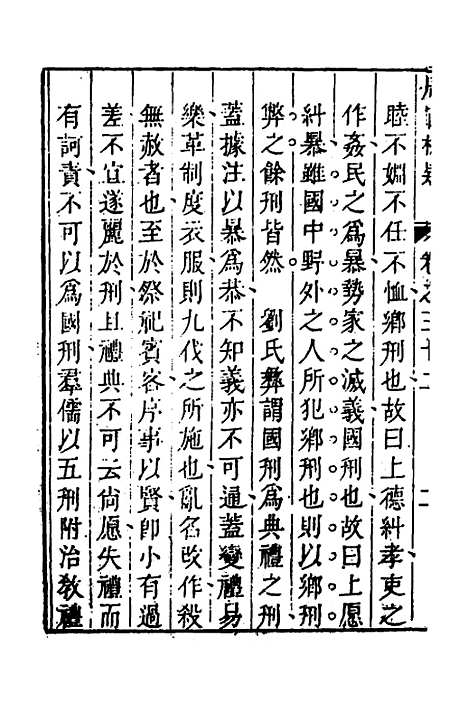 睦不婣不任不恤鄉刑也故曰上德糾孝吏之
作姦民之爲暴勢家之滅義國刑也故曰上愿
糾暴雖國中野外之人所犯鄉刑也則以鄉刑
弊之餘刑皆然　劉氏彝謂國刑爲典禮之刑
蓋據注以暴爲恭不知義亦不可通蓋變禮易
樂革制度衣服則九伐之所施也亂名改作殺
無赦者也至於祭祀賓客片事以賢卽小有過
差不宜遂麗於刑且禮典不可云尙愿失禮而
有訶責不可以爲國刑羣儒以五刑附治敎禮
卷之三十二